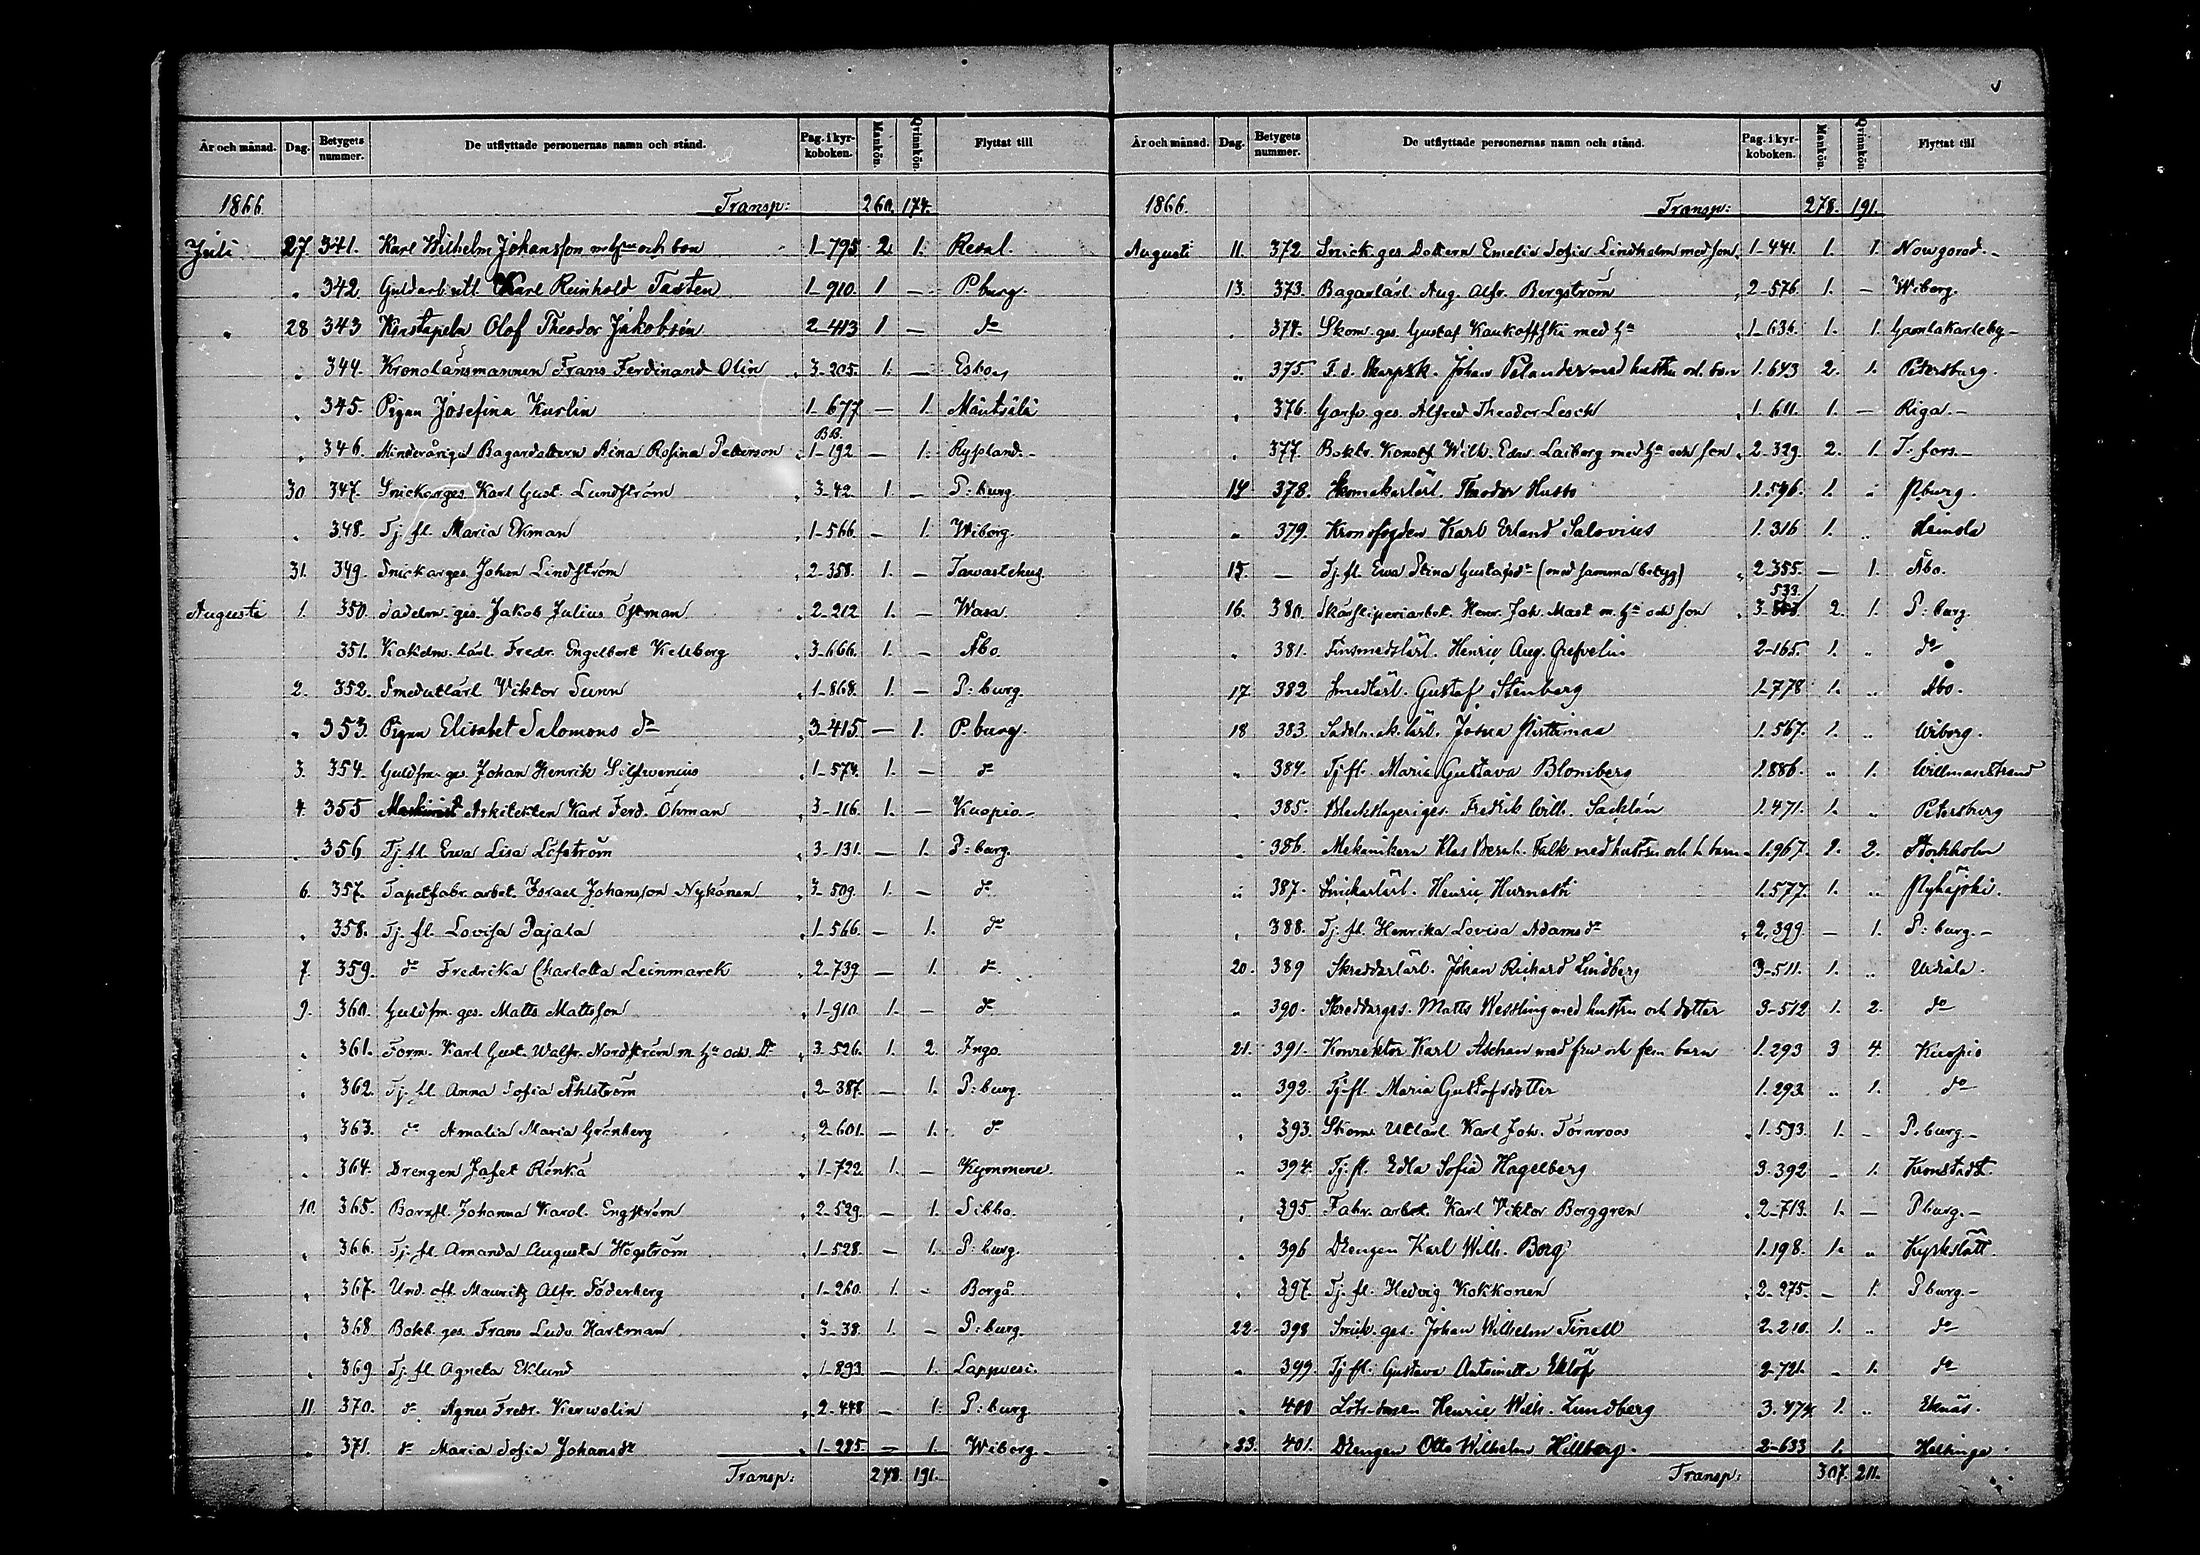 År och månad. Dag. Betygets nummer. De utflyttade personernas namn och stånd. Pag. i kyrkoboken. Mankön. Qvinnkön. Flyttat till
1866. Transp: 260. 174.
Juli 27 341. Karl Wilhelm Johansson m hu och son 1-795 2. 1. Reval.
" 342. Guldarb. utl. Karl Reinhold Tasten 1-910. 1 — P.burg.
" 28 343 Konstapeln Olof Theodor Jakobsén 2-413 1 — do
" 344. Kronolänsmannen Frans Ferdinand Olin 3-205. 1. — Esbo
" 345. Pigan Josefina Kurlin 1-677 — 1. Mäntsälä
" 346. Minderåriga Bagardottern Aina Rosina Peterson BB. 1-192 — 1. Ryssland.
30 347. Snickarges. Karl Gust. Lundström 3-42. 1 — P:burg.
" 348. Tj. fl. Maria Ekman 1-566. — 1. Wiborg.
31. 349. Snickarges. Johan Lindström 2-358. 1. — Tawastehus.
Augusti 1. 350. Sadelm. ges. Jakob Julius Östman 2-212 1. — Wasa.
351. Kakelm. lärl. Fredr. Engelbert Kellberg 3-666. 1. — Åbo.
2. 352. Smedutlärl Viktor Sunn 1-868. 1. — P:burg.
" 353. Pigan Elisabet Salomons dr 3-415 — 1. P.burg.
3. 354. Guldsm. ges. Johan Henrik Silfwenius 1-574. 1. — do
4. 355 Arkitekten Karl Ferd. Öhman 3-116 1. — Kuopio.
" 356 Tj. fl. Ewa Lisa Löfström 3-131. — 1. P:burg.
6. 357. Tapetfabr. arbet. Israel Johansson Nykänen 3-509. 1. — do
" 358. Tj. fl. Lovisa Pajala 1-566 — 1. do
7. 359. do Fredrika Charlotta Leinmarck 2-739 — 1. do
9. 360. Guldsm. ges. Matts Mattsson 1-910 1. — do
" 361. Form. Karl Gust. Walfr. Nordström m. hu och dr 3-526. 1. 2. Ingo.
" 362. Tj. fl. Anna Sofia Ahlström 2-387. — 1. P:burg.
" 363. do Amalia Maria Grönberg 2-601. — 1. do
" 364. Drengen Jafet Rönkä 1-722 1. — Kymmene.
10. 365. Barnfl. Johanna Karol. Engström 2-529. — 1. Sibbo.
" 366. Tj. fl. Amanda Augusta Högström 1-528. — 1. P:burg.
" 367. Und. off. Mauritz Alfr. Söderberg 1-260. 1. - Borgå.
" 368 Bokb. ges. Frans Ludv. Hartman 3-38. 1. — P:burg.
" 369. Tj. fl. Agneta Eklund 1-893 — 1. Lappvesi.
11. 370. do Agnes Fredr. Kerwelin 2-448 — 1. P:burg
" 371. do Maria Sofia Johansdr 1-285. — 1. Wiborg
Transp: 278. 191.
År och månad. Dag. Betygets nummer. De utflyttade personernas namn och stånd. Pag. i kyrkoboken. Mankön. Qvinnkön. Flyttat till
1866. Transp: 278. 191.
Augusti 11. 372 Snick. ges. Dottern Emelie Sofia Lindholm med son 1-441. 1. 1. Nowgorod.
13. 373. Bagarlärl. Aug. Alfr. Bergström 2-576. 1. — Wiborg.
" 374. Skom. ges. Gustaf Kaukoffski med hu 1-636. 1. 1. Gamlakarleby
" 375. F. d. Skarpsk. Johan Palander med hustru och son 1.643 2. 1. Petersburg.
" 376. Garfv. ges. Alfred Theodor Lesch 1.611. 1. — Riga.
" 377. Boktr. Konstf. Wilh. Edw. Laiberg med hu och son 2-329. 2. 1. T:fors.
14. 378. Skomakarlärl. Theodor Husto 1.546. 1. " P.burg.
" 379. Kronofogden Karl Erland Salovius 1.316 1. "
15. — Tj. fl. Ewa Stina Gustafsdr (med samma betyg) 2.355. — 1. Åbo.
16. 380. Henr. Joh. Mast m. hu och son 533 2. 1. P:burg.
" 381. Tinsmedslärl. Henric Aug. Grefvelin 2-165. 1. " do
17 382 Smedlärl. Gustaf Stenberg 1-778 1. " Åbo.
18 383. Sadelmak. lärl. Josua 1.567. 1. " Wiborg.
" 384. Tj. fl. Maria Gustava Blomberg 1.886. " 1. Willmanstrand
" 385. Bleckslageriges. Fredrik Wilh. Sacklén 1.471. 1. " Petersburg
" 386. Mekanikern Klas Bernh. Falk med hustru och barn 1.967. 2. Stockholm
" 387. Snickarlärl. Henric Hurnath 1.577. 1. " Pyhäjoki.
" 388. Tj. fl. Henrika Lovisa Adamsdr 2.399. — 1. P:burg.
20. 389 Skreddarlärl. Johan Richard Lindberg 3-511. 1. " Urdiala.
" 390. Skreddarges. Matts Wessling med hustru och dotter 3-512 1. 2. do
21. 391. Konrektor Karl Aschan med fru och fem barn 1.293 3 4. Kuopio
" 392. Tj. fl. Maria Gustafsdotter 1.293. " 1. do
" 393. Skom. Utlärl. Karl Joh. Törnroos 1.593. 1. — P.burg
" 394. Tj. fl. Edla Sofia Hagelberg 3.392 — 1. Kronstadt.
" 395 Fabr. arbet. Karl Viktor Borggren 2-713. 1. — P.burg.
" 396 Drengen Karl Wilh. Borg 1.198. 1. " Kyrkslätt.
" 397. Tj. fl. Hedvig Kokkonen 2-275. — 1. P.burg.
22 398 Snick. ges. Johan Wilhelm Tinell 2.210. 1. " do
" 399. Tj. fl. Gustava Antoinetta Eklöf 2-721. — 1. do
" 400 Henric Wilh. Lundberg 3.474. 1. " Ekenäs.
23. 401. Drengen Otto Wilhelm Hillberg 2-633 1. Helsinge
Transp: 307. 211.